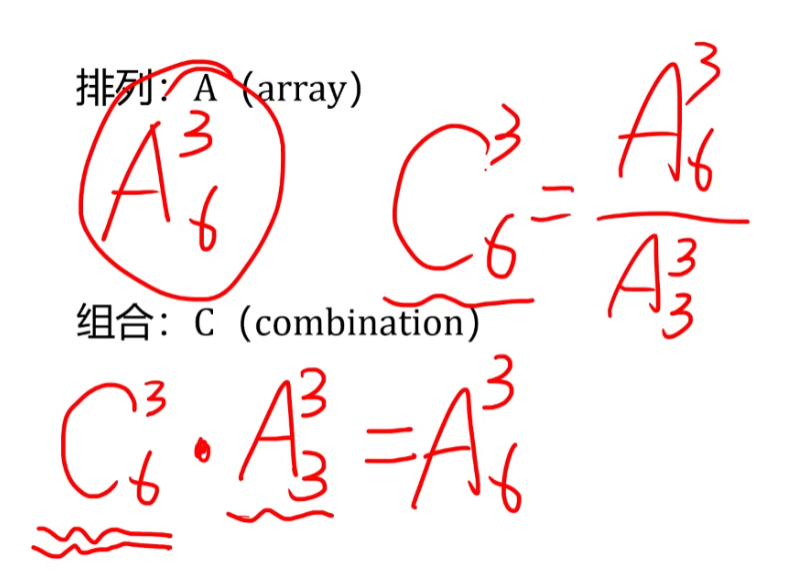 排列：A（array）
A₆³
C₆³ = A₆³ / A₃³
组合：C（combination）
C₆³ · A₃³ = A₆³